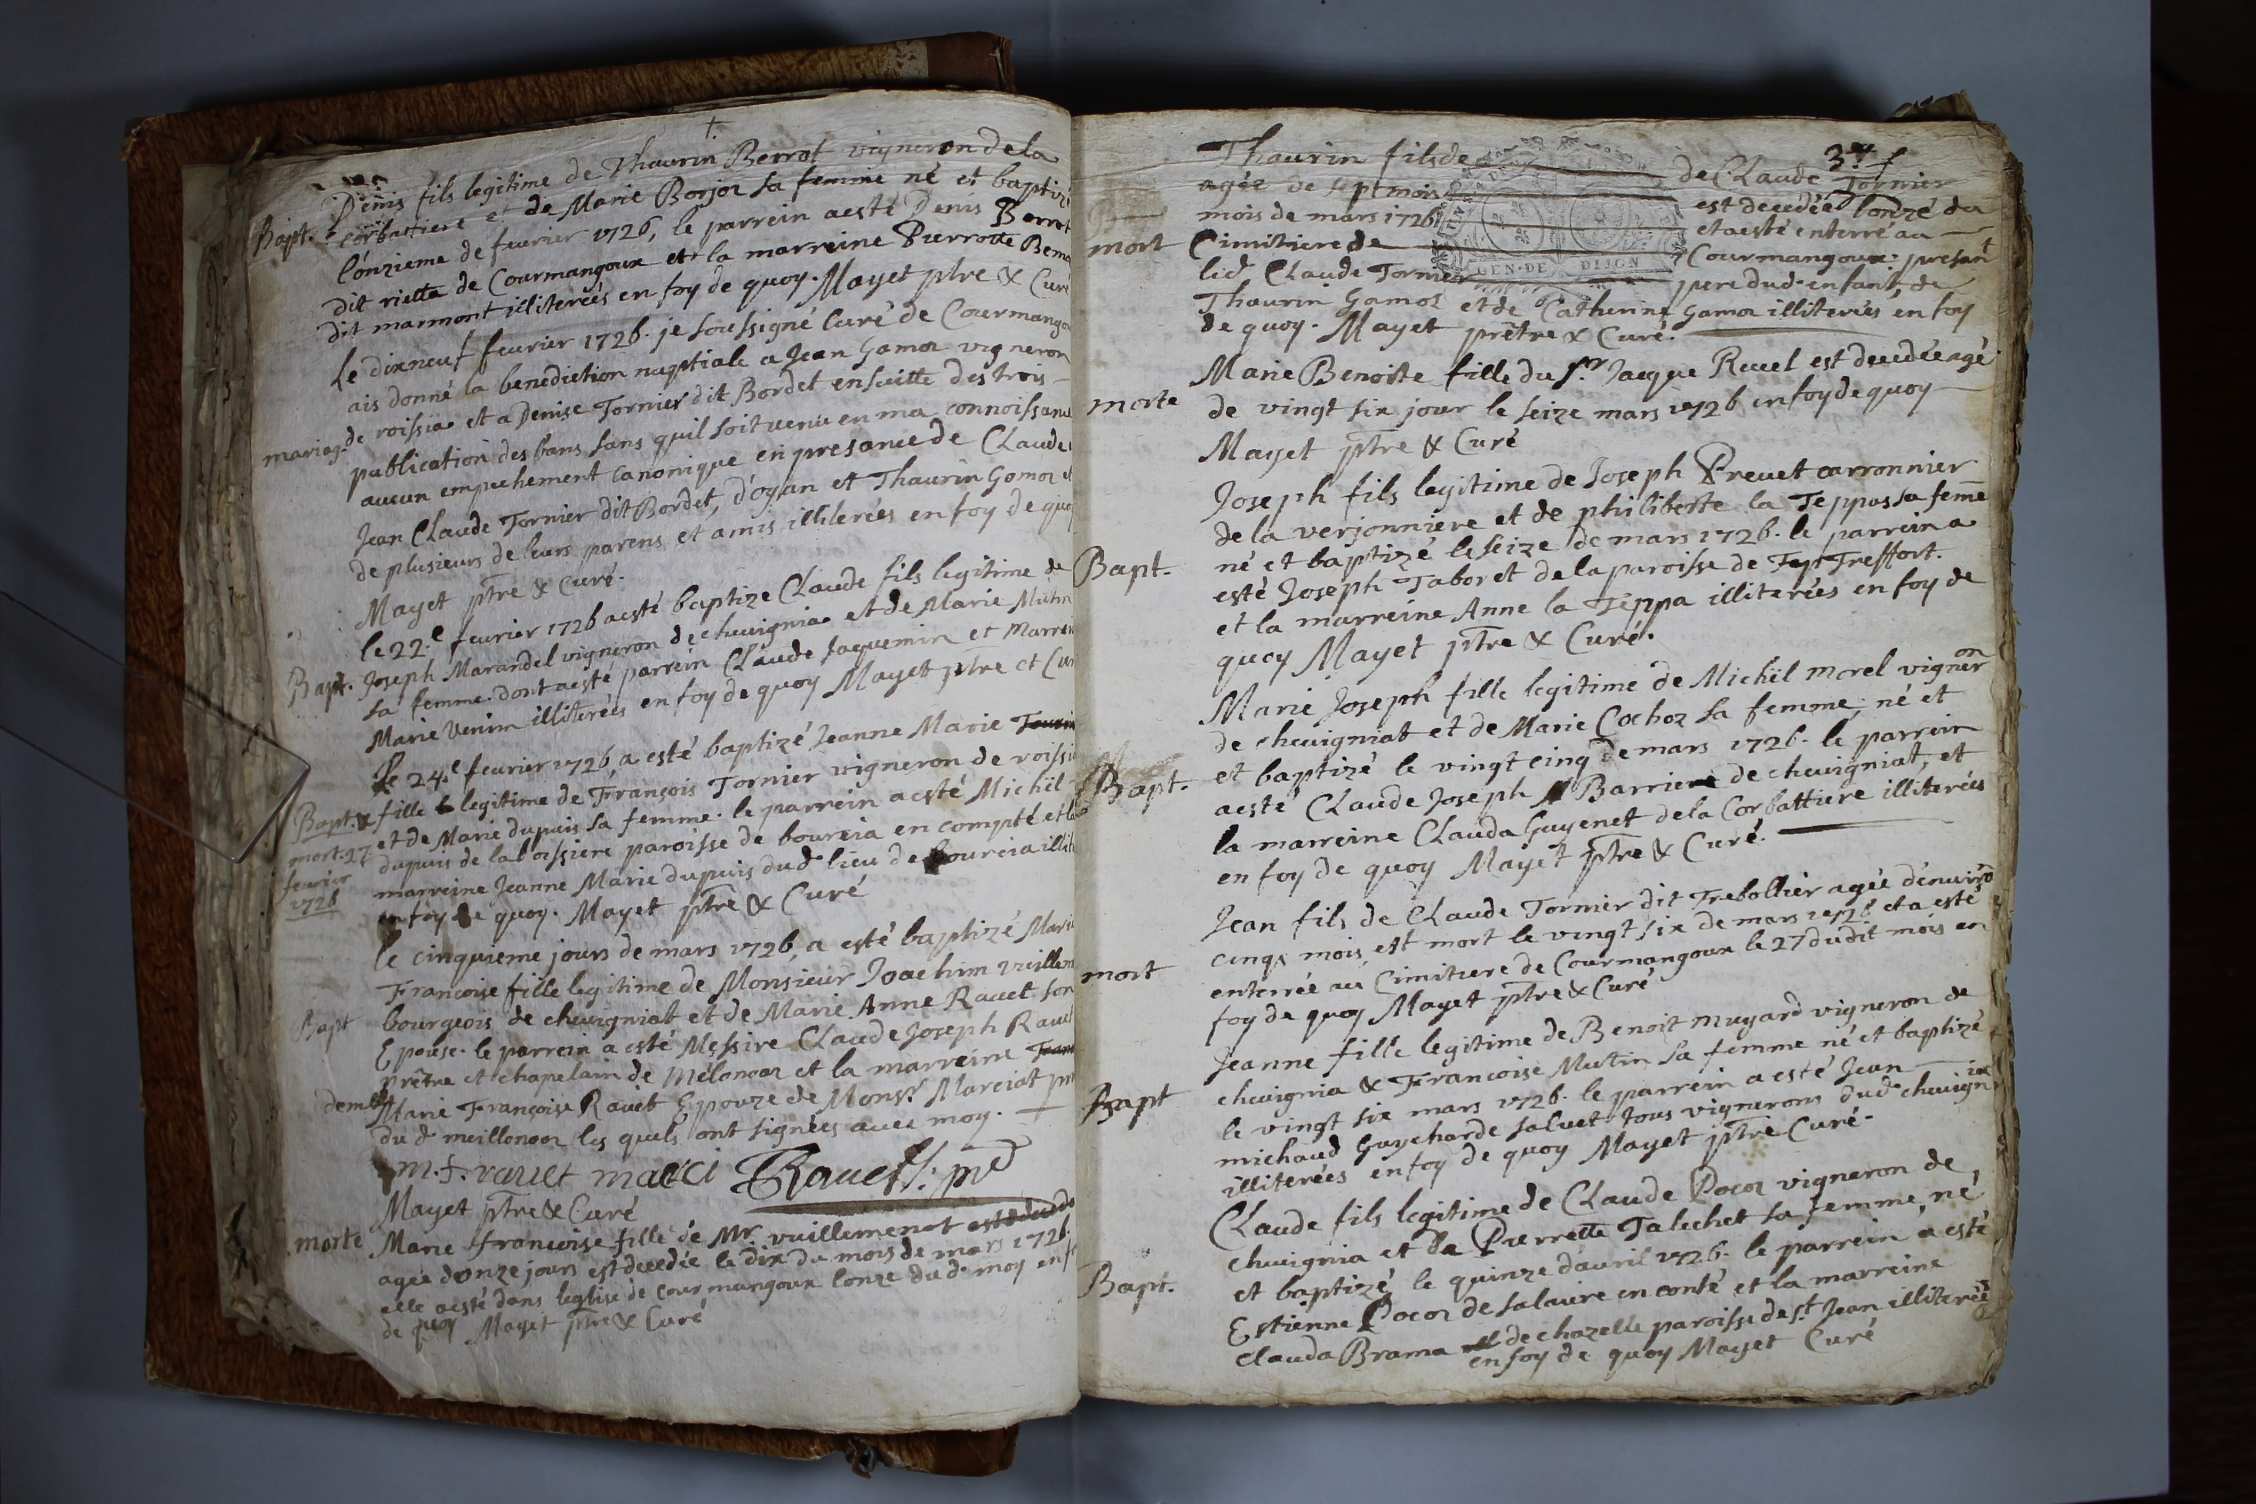 Bapt. Denis fils legitime de Thaurin Berrot vigneron de la
corbattiere et de Marie Borjoz sa femme né et baptizé
l'onzieme de feurier 1726, le parrein a esté Denis Berrot
dit rietta de Courmangoux et la marreine Pierrotte
dit marmont illiterés en foy de quoy. Mayet ptre & Curé
Le dixneuf feurier 1726. je soussigné Curé de
ais donné la benediction nuptiale a Jean Gamoz vigneron
mariag. de roissia et a Denise Tornier dit Bordet ensuitte des trois
publication des bans sans qu'il soit venu en ma connoissance
aucun empechement canonique en presance de Claude
Jean Claude Tornier dit Bordet, d'oyan et Thaurin Gamoz
de plusieurs de leurs parens et amis illiterés en foy de quoy
Mayet ptre & Curé.
le 22.e feurier 1726 a esté baptize Claude fils legitime de
Bapt. Joseph Marandel vigneron de cheuignia et de Marie
sa femme. dont a esté parrein Claude Jaquemin et
Marie Venin illiterés en foy de quoy Mayet ptre et
Le 24.e feurier 1726 a esté baptizé Jeanne Marie
Bapt. & fille legitime de François Tornier vigneron de
mort. 27 et de Marie dupuis sa femme. le parrein a esté Michel
feurier dupuis de la boissiere paroisse de bourcia en compté et la
1726 marreine Jeanne Marie dupuis dud. lieu de bourcia
en foy de quoy. Mayet ptre & Curé
le cinquieme jours de mars 1726, a esté baptizé Marie
Francoise fille legitime de Monsieur Joachim
Bapt bourgeois de cheuigniat et de Marie Anne Rauet son
Epouse. le parrein a esté Messire Claude Joseph Rauet
prêtre et chapelain de Mélonoz et la marreine
Marie Françoise Rauet Epouze de Monsr. Marciat
du d. meillonoz les quels ont signées auec moy.
m. f. rauet
Mayet ptre & Curé
morte Marie francoise fille de Mr. vuillemenot
agée d'onze jours est decedée le dix du mois de mars 1726.
elle a esté dans leglise de Courmangoux l'onze du d. moy
de quoy Mayet ptre & Curé
3
Thaurin fils de de Claude Tornier
agée de sept mois est decedée l'onzé du
mois de mars 1726 et a esté enterré au
mort Cimitiere de Courmangoux. presant
led. Claude Tornier pere dud. enfant, de
GEN. DE DIJON
Thaurin Gamoz et de Catherine Gamoz illiterés en foy
de quoy. Mayet prêtre & Curé.
Marie Benoite fille du Sr. Jacque Reuel est decedée agé
morte de vingt six jour le seize mars 1726 en foy de quoy
Mayet ptre & Curé
Joseph fils legitime de Joseph Preuet carronnier
de la verjonniere et de philiberte la Teppas sa femme
Bapt. né et baptizé le seize de mars 1726. le parrein a
esté Joseph Taboret de la paroisse de Treffort.
et la marreine Anne la Teppa illiterées en foy de
quoy Mayet ptre & Curé.
Marie Joseph fille legitime de Michel morel vigneron
de cheuigniat et de Marie Cochoz sa femme, né et
Bapt. et baptizé le vingt cinq de mars 1726. le parrein
a esté Claude Joseph Barriere de cheuigniat, et
la marreine Clauda Guyenet de la Corbattiere illiterées
en foy de quoy Mayet ptre & Curé.
Jean fils de Claude Tornier dit Trebollier agée d'enuiro
cinq mois est mort le vingt six de mars 1726 et a esté
mort enterrée au Cimitiere de Courmangoux le 27 du dit mois en
foy de quoy Mayet ptre & Curé
Jeanne fille legitime de Benoit mugard vigneron de
cheuignia & Francoise Mutin sa femme né et baptizé
Bapt le vingt six mars 1726. le parrein a esté Jean
michaud Guycharde saluet tous vignerons dud. cheuign
illiterées en foy de quoy Mayet ptre Curé.
Claude fils legitime de Claude Pocoz vigneron de
cheuignia et de Pierrette Taluchet sa femme, né
Bapt. et baptizé le quinze d'auril 1726. le parrein a esté
Estienne Pocoz de salauire en conté et la marreine
Clauda Brama de chazelle paroisse de st. Jean illiterées
en foy de quoy Mayet Curé